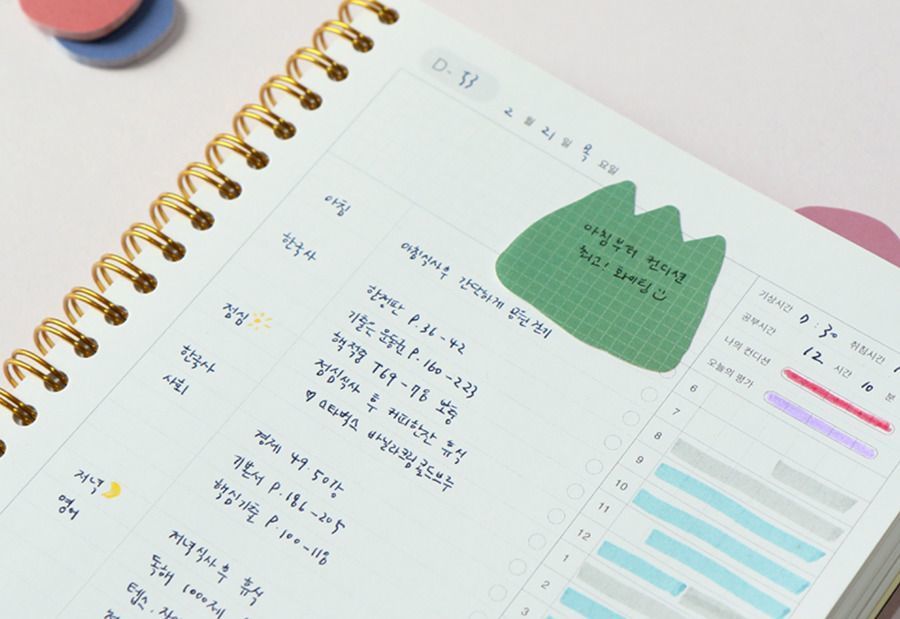 D-33
2월 21일 목요일
아침부터 컨디션
최고! 화이팅
아침
아침식사 후 간단하게 공원 걷기
한국사
P.36-42
기출은 P.160-223
T69-78 보통
점심
점심식사 후 커피한잔 휴식
♡ 스타벅스 바닐라크림콜드브루
한국사
사회
경제 49 50강
기본서 P.186-205
핵심기출 P.100-118
저녁
저녁식사 후 휴식
영어
독해 1000제
텝스.
기상시간 7:30 취침시간
공부시간 12 시간 10 분
나의 컨디션
오늘의 평가
6
7
8
9
10
11
12
1
2
3